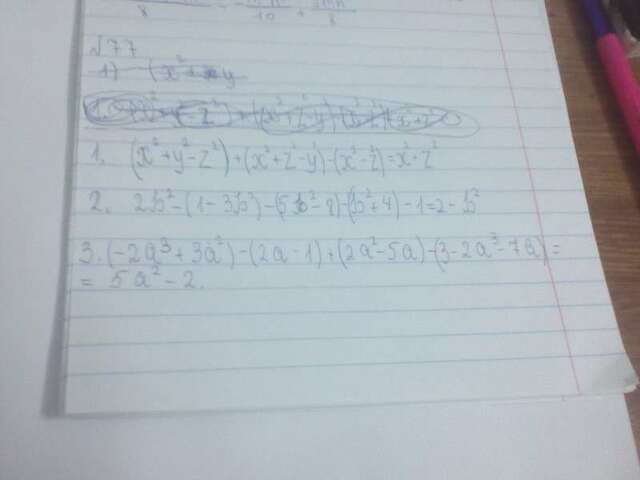 №77
1. (x²+y²-z²)+(x²+z²-y²)-(x²-z²)=x²+z²
2. 2b²-(1-3b²)-(5b²-8)-(b²+4)-1=2-b²
3. (-2a³+3a²)-(2a-1)+(2a²-5a)-(3-2a³-7a)=
= 5a²-2.